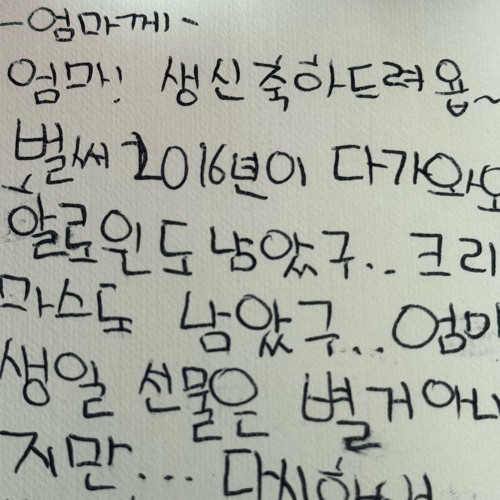 -엄마께-
엄마! 생신축하드려욥~
벌써 2016년이 다가와요
할로윈도 남았구.. 크리
마스도 남았구... 엄마
생일 선물은 별거아니
지만...